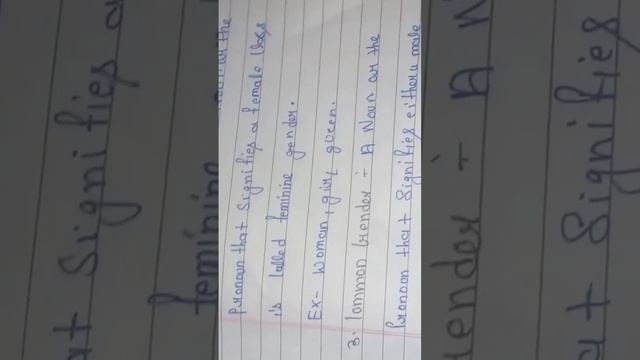 Pronoun that signifies a female class
is called feminine gender.
Ex- Woman, girl, queen.
3. Common Gender ÷ A Noun or the
Pronoun that Signifies either a male